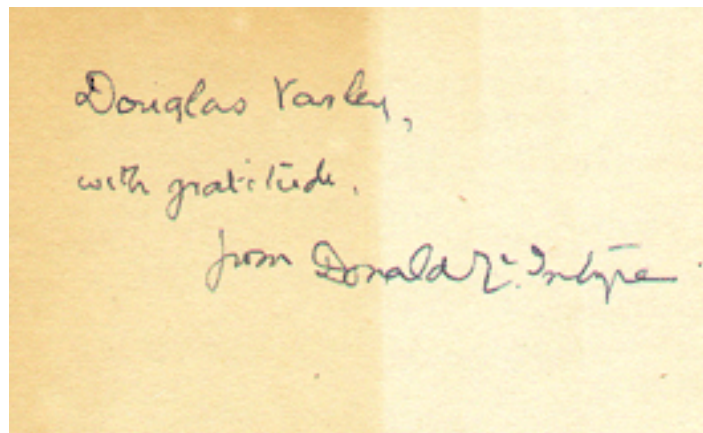 Douglas Varley,
with gratitude.
from Donald Mc.Intyre.